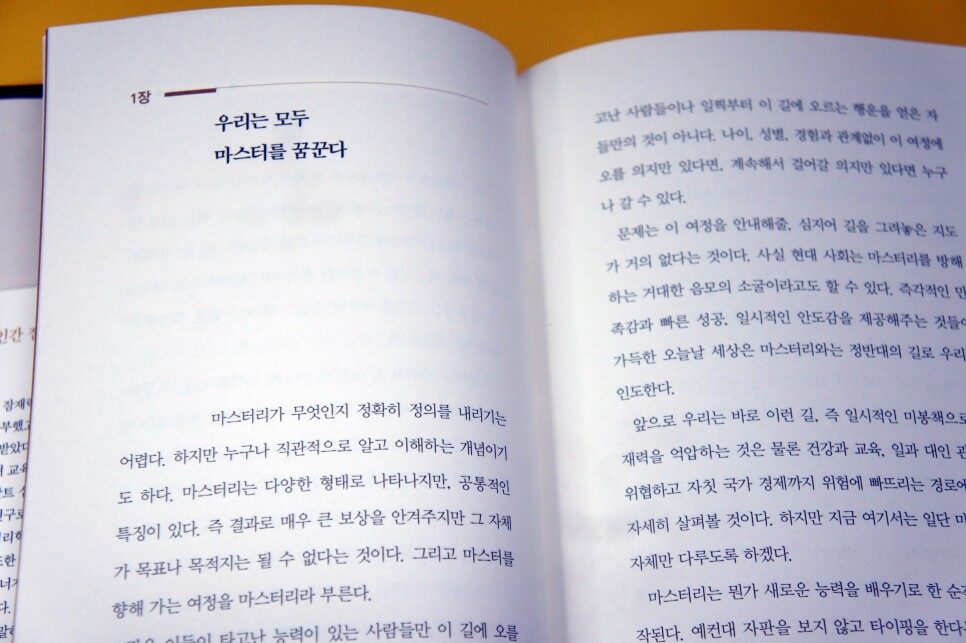 1장
우리는 모두
마스터를 꿈꾼다
마스터리가 무엇인지 정확히 정의를 내리기는
어렵다. 하지만 누구나 직관적으로 알고 이해하는 개념이기
도 하다. 마스터리는 다양한 형태로 나타나지만, 공통적인
특징이 있다. 즉 결과로 매우 큰 보상을 안겨주지만 그 자체
가 목표나 목적지는 될 수 없다는 것이다. 그리고 마스터를
향해 가는 여정을 마스터리라 부른다.
타고난 능력이 있는 사람들만 이 길에 오를
고난 사람들이나 일찍부터 이 길에 오르는 행운을 얻은 자
들만의 것이 아니다. 나이, 성별, 경험과 관계없이 이 여정에
오를 의지만 있다면, 계속해서 걸어갈 의지만 있다면 누구
나 갈 수 있다.
문제는 이 여정을 안내해줄, 심지어 길을 그려놓은 지도
가 거의 없다는 것이다. 사실 현대 사회는 마스터리를 방해
하는 거대한 음모의 소굴이라고도 할 수 있다. 즉각적인 만
족감과 빠른 성공, 일시적인 안도감을 제공해주는 것들이
가득한 오늘날 세상은 마스터리와는 정반대의 길로 우리
인도한다.
앞으로 우리는 바로 이런 길, 즉 일시적인 미봉책으로
재력을 억압하는 것은 물론 건강과 교육, 일과 대인 관
위협하고 자칫 국가 경제까지 위험에 빠뜨리는 경로에
자세히 살펴볼 것이다. 하지만 지금 여기서는 일단 마
자체만 다루도록 하겠다.
마스터리는 뭔가 새로운 능력을 배우기로 한 순간
작된다. 예컨대 자판을 보지 않고 타이핑을 한다